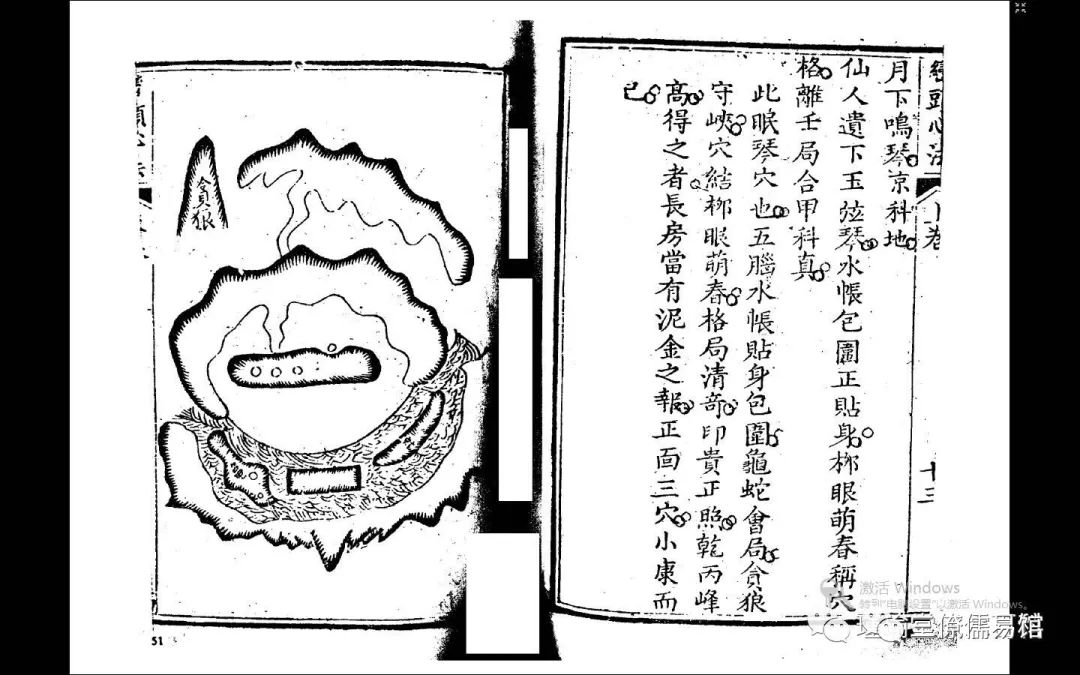 巒頭心法
卷
十三
月下鳴琴京科地
仙人遺下玉弦琴水帳包圍正貼身栁眼萌春稱穴
格離壬局合甲科真
此眠琴穴也五腦水帳貼身包圍龜蛇會局貪狼
守峽穴結栁眼萌春格局清竒印貴正照乾丙峰
高得之者長房當有泥金之報正面三穴小康而
已
貪狼
51
激活 Windows
转到"电脑设置"以激活 Windows。
儒易馆